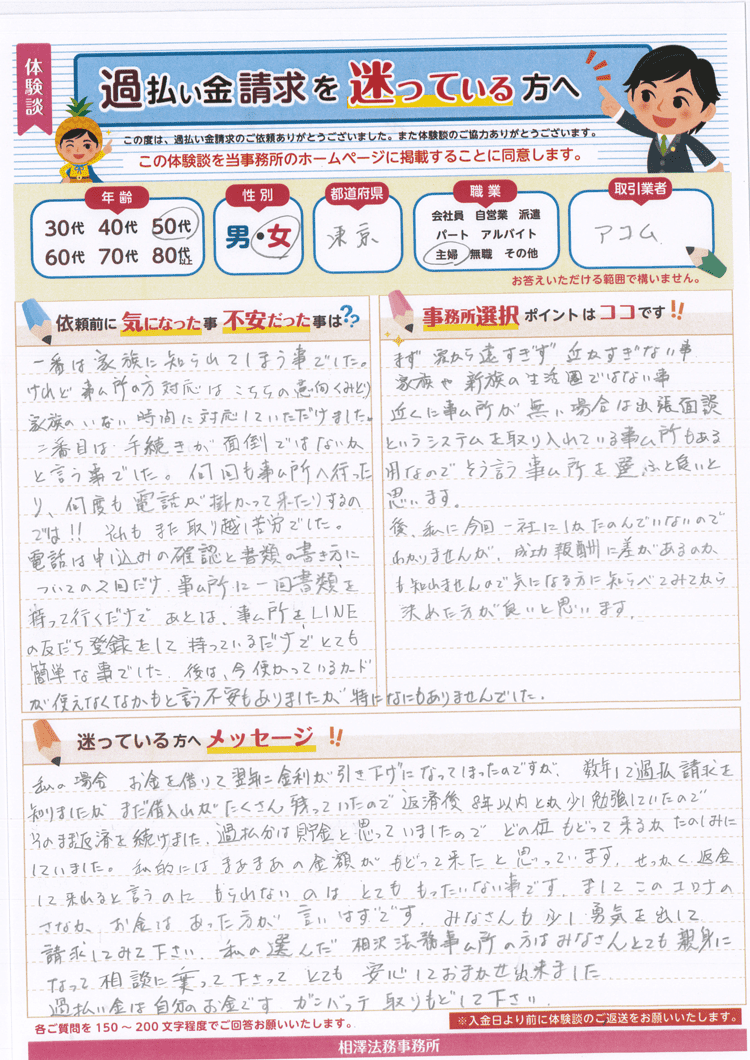 体験談
過払い金請求を 迷っている 方へ
この度は、過払い金請求のご依頼ありがとうございました。また体験談のご協力ありがとうございます。
この体験談を当事務所のホームページに掲載することに同意します。
年齢
30代 40代 50代
60代 70代 80代以上
性別
男・女
都道府県
東京
職業
会社員 自営業 派遣
パート アルバイト
主婦 無職 その他
取引業者
アコム
お答えいただける範囲で構いません。
依頼前に 気になった事 不安だった事は??
一番は家族に知られてしまう事でした。
けれど事ム所の方対応はこちらの意向くみとり
家族のいない時間に対応していただけました。
二番目は、手続きが面倒ではないか
と言う事でした。何回も事ム所へ行った
り、何度も電話が掛かって来たりするの
では!! それもまた取り越し苦労でした。
電話は申込みの確認と書類の書き方に
ついての2回だけ、事ム所に一回書類を
持って行くだけで あとは、事ム所をLINE
の友だち登録をして持っているだけでとても
簡単な事でした。後は、今使かっているカード
が使えなくなかもと言う不安もありましたが特になにもありませんでした。
事務所選択 ポイントは ココです!!
まず 家から遠すぎず 近すぎない事
家族や新族の生活圏ではない事
近くに事ム所が無い場合は出張面談
というシステムを取り入れている事ム所もある
用なのでそう言う事ム所を選ぶと良いと
思います。
後、私に今回一社にしかたのんでいないので
わかりませんが、成功報酬に差があるのか
も知れませんので気になる方に知らべてみてから
決めた方が良いと思います。
迷っている方へ メッセージ !!
私の場合 お金を借りて翌年に金利が引き下げになってしまったのですが、数年して過払請求を
知りましたが まだ借入がたくさん残っていたので返済後8年以内とか少し勉強していたので
そのまま返済を続けました。過払分は貯金と思っていましたので どの位もどって来るか たのしみに
していました。私的にはまあまあの金額が もどって来たと思っています。せっかく返金
して来れると言うのに もらわないのは とても もったいない事です。ましてこのコロナの
さなか、お金は あった方が 言いはずです。みなさんも少し勇気を出して
請求してみて下さい。私の選んだ 相沢法務事ム所の方はみなさんとても親身に
なって相談に乗って下さって とても 安心しておまかせ出来ました
過払い金は自分のお金です ガンバッテ取りもどして下さい。
各ご質問を150〜200文字程度でご回答お願いいたします。
※入金日より前に体験談のご返送をお願いいたします。
相澤法務事務所